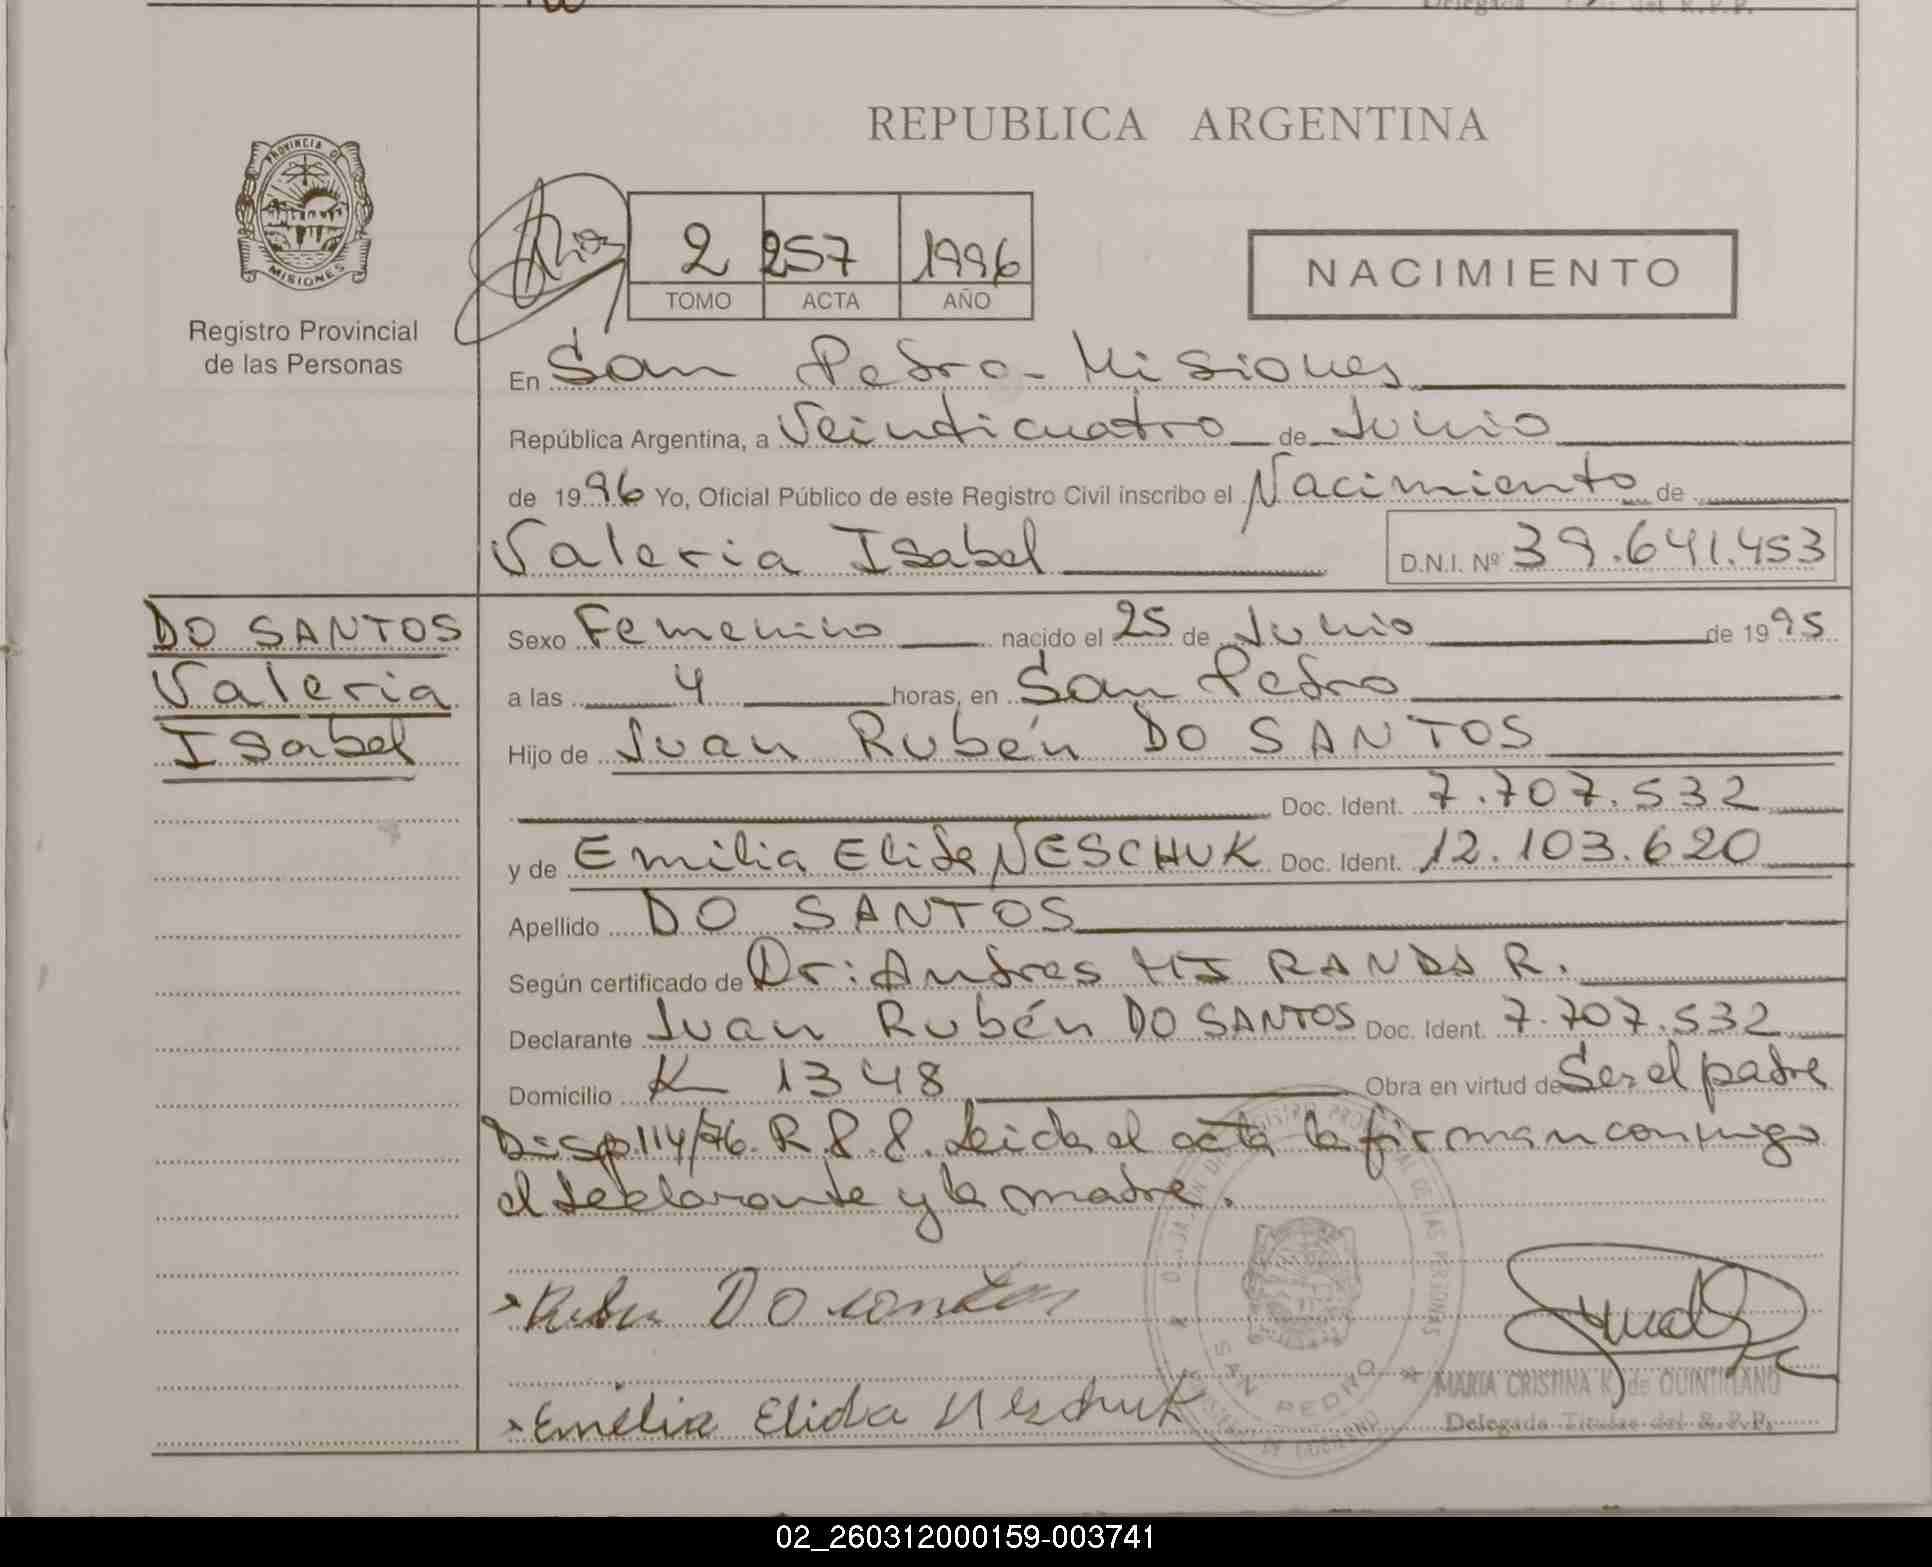 REPUBLICA ARGENTINA
PROVINCIA DE
MISIONES
Registro Provincial
de las Personas
2 257 1996
TOMO ACTA AÑO
NACIMIENTO
En San Pedro - Misiones
República Argentina, a Veinticuatro de Junio
de 1996 Yo, Oficial Público de este Registro Civil inscribo el Nacimiento de
Valeria Isabel D.N.I. Nº 39.641.453
DO SANTOS
Valeria
Isabel
Sexo Femenino nacido el 25 de Junio de 1995
a las 4 horas, en San Pedro
Hijo de Juan Rubén DO SANTOS
Doc. Ident. 7.707.532
y de Emilia Elida NESCHUK Doc. Ident. 12.103.620
Apellido DO SANTOS
Según certificado de Dr: Andres MIRANDA R.
Declarante Juan Rubén DO SANTOS Doc. Ident. 7.707.532
Domicilio K 1348 Obra en virtud de Ser el padre
Disp. 114/96. R.P.P. Leida el acta la firman conmigo
el declarante y la madre.
Ruben DO santos
SAN PEDRO
MARIA CRISTINA K. de QUINTILIANO
Emilia Elida Neschuk
Delegada Titular del R.P.P.
02_260312000159-003741